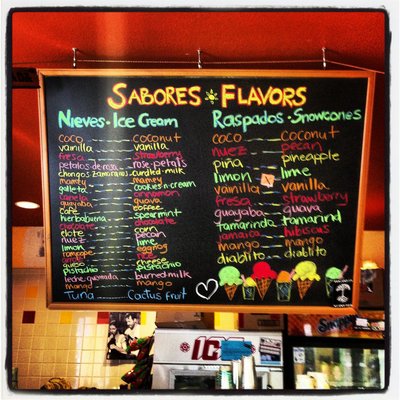 SABORES FLAVORS
Nieves - Ice Cream
coco coconut
vainilla vanilla
fresa strawberry
petalos de rosa rose-petals
chongos zamoranos curdled-milk
mamey mamey
galleta cookies n cream
canela cinnamon
guayaba guava
cafe coffee
hierbabuena spearmint
chocolate chocolate
elote corn
nuez pecan
limon lime
rompope eggnog
arroz rice
queso cheese
pistachio pistachio
leche quemada burned milk
mango mango
Tuna Cactus fruit
Raspados - Snowcones
coco coconut
nuez pecan
piña pineapple
limon lime
vainilla vanilla
fresa strawberry
guayaba guava
tamarindo tamarind
jamaica hibiscus
mango mango
diablito diablito
ICE